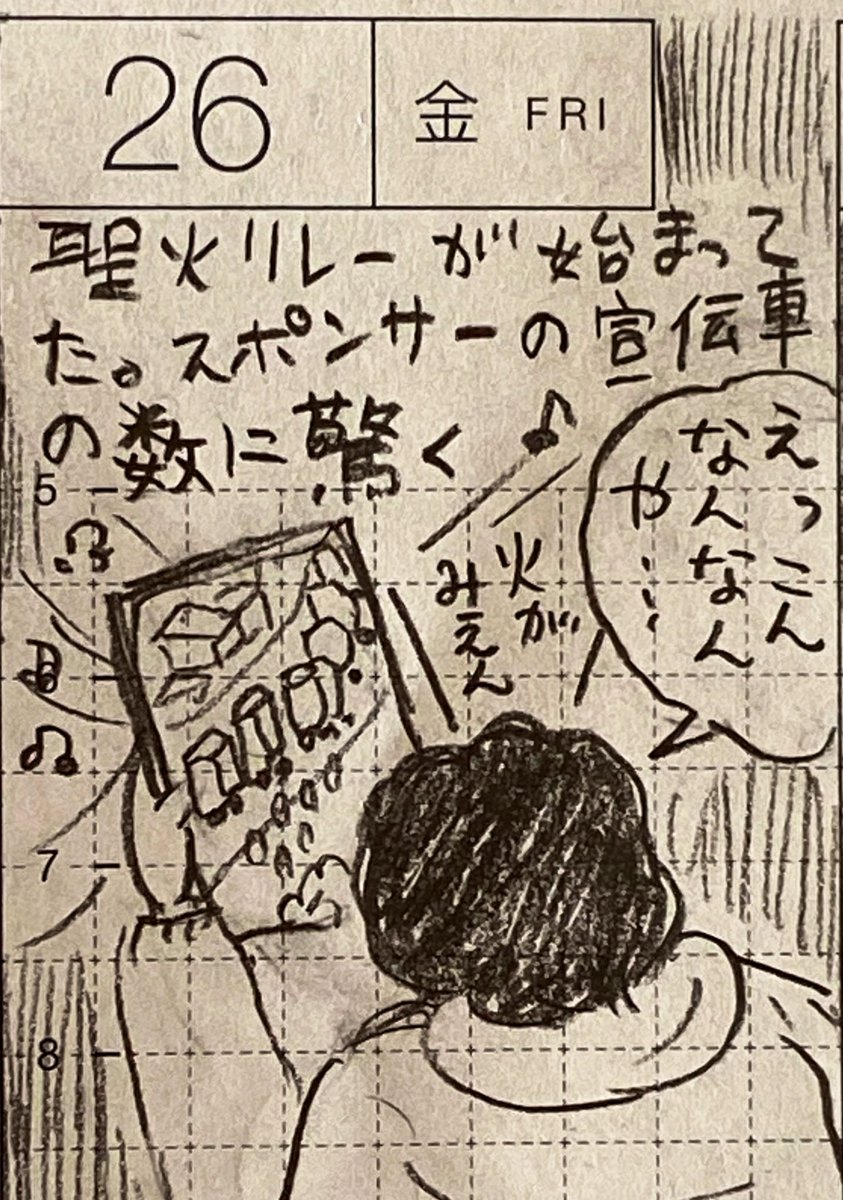 26
金 FRI
聖火リレーが始まって
た。スポンサーの宣伝車
の数に驚く
えっこん
なんなん
や…
火が
みえん
5
7
8